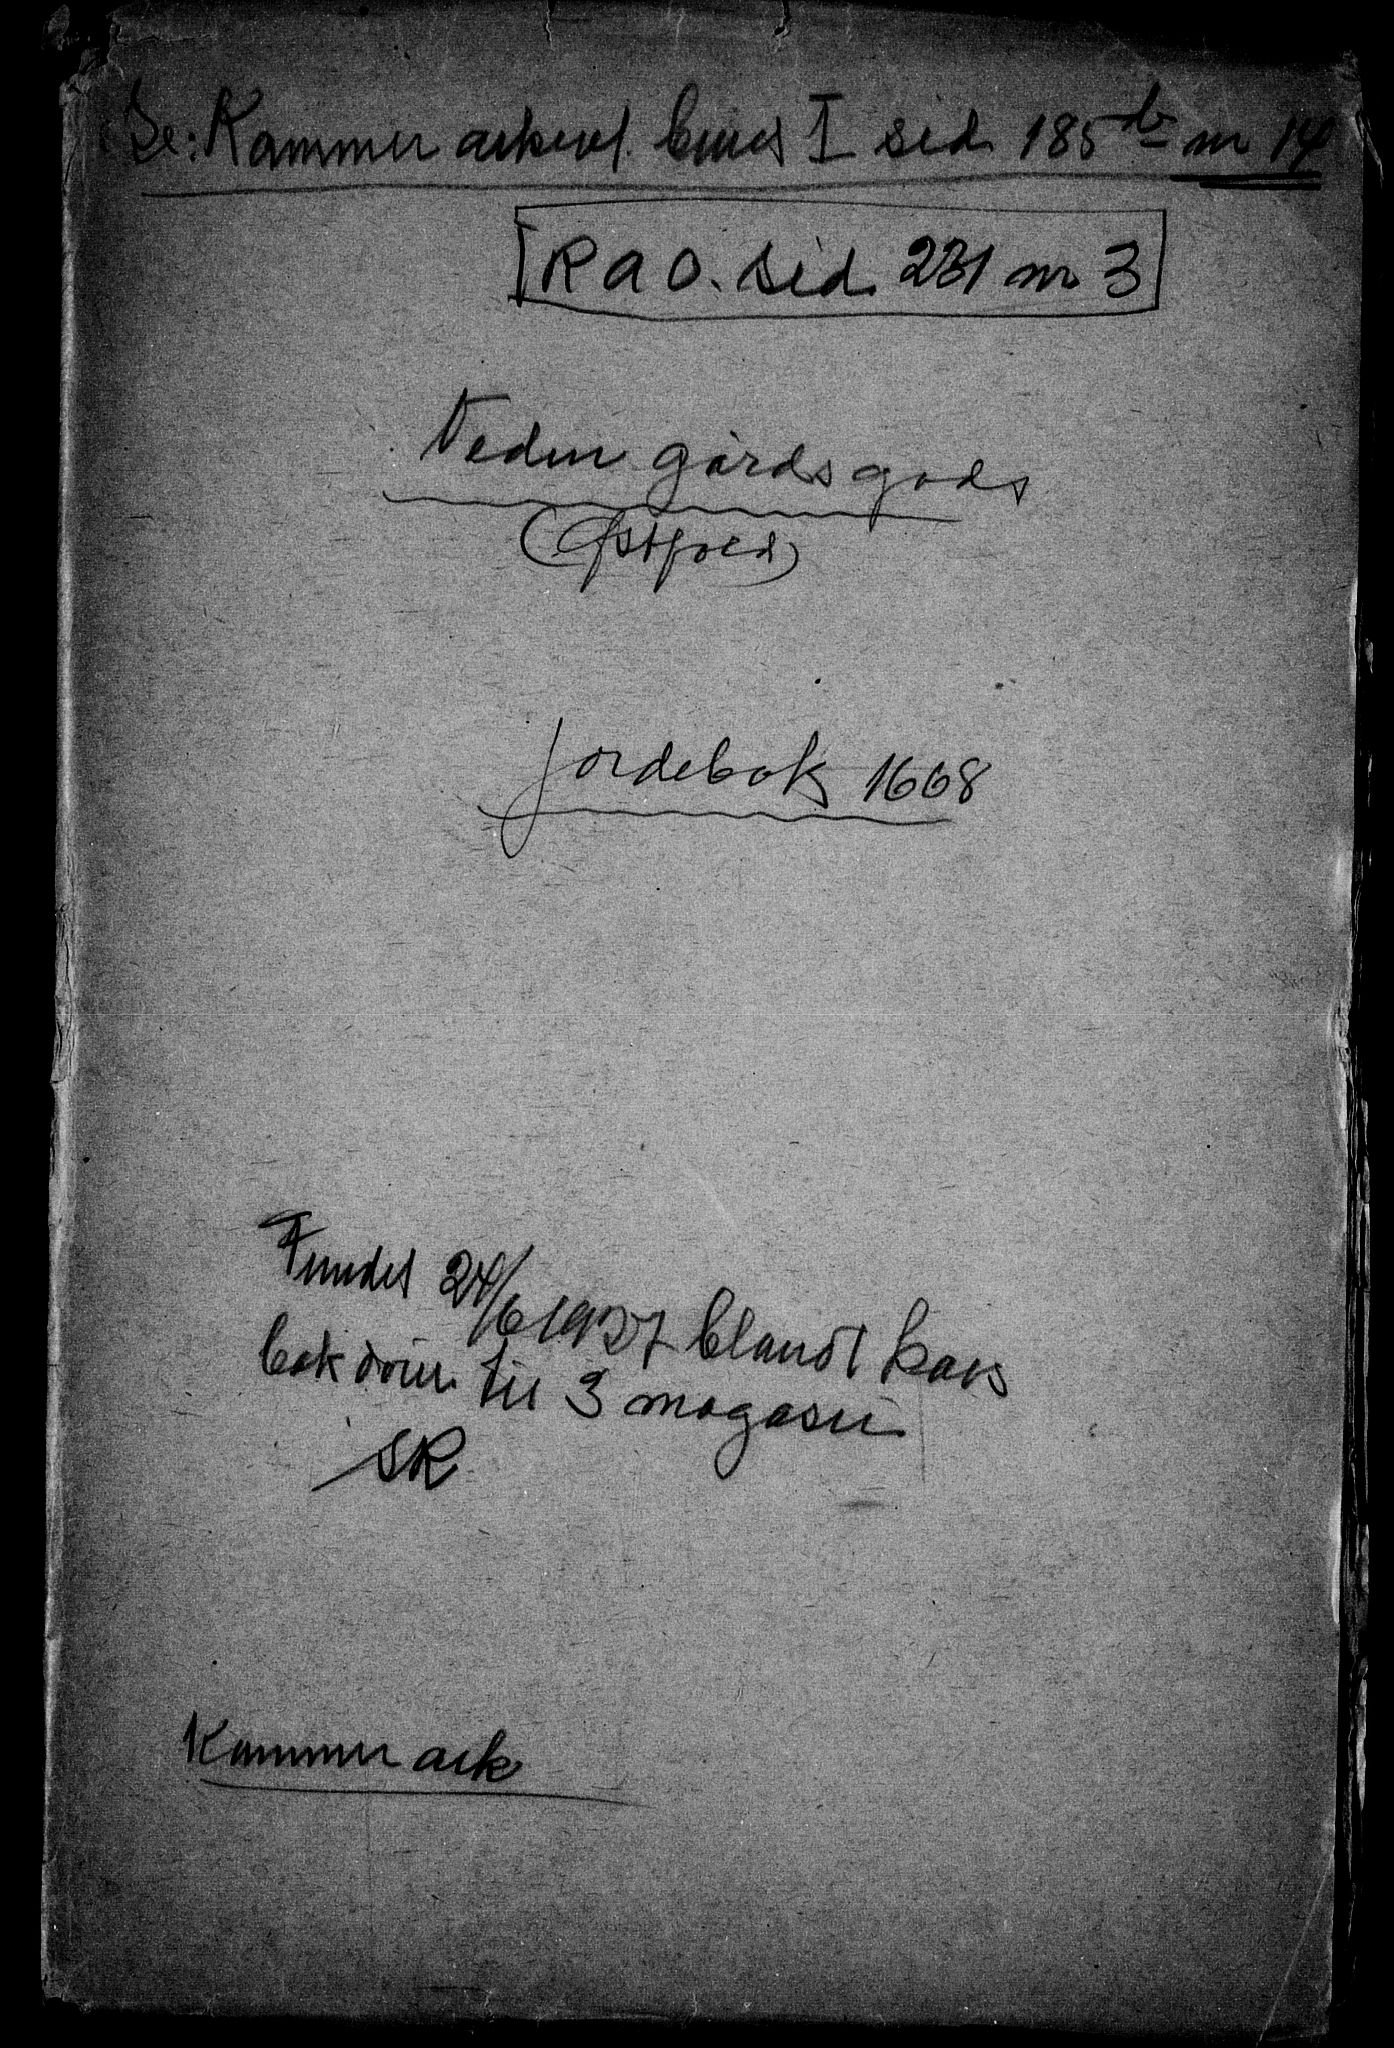 Se: Kammerarkivet bind I sid 185 nr 14
RaO. sid. 231 nr 3
Veden gårdsgods
(Østfold)
Jordebok 1668
Fundet 24/6 1927 blandt kaos
bak døren til 3 magasin
SR
Kammerark